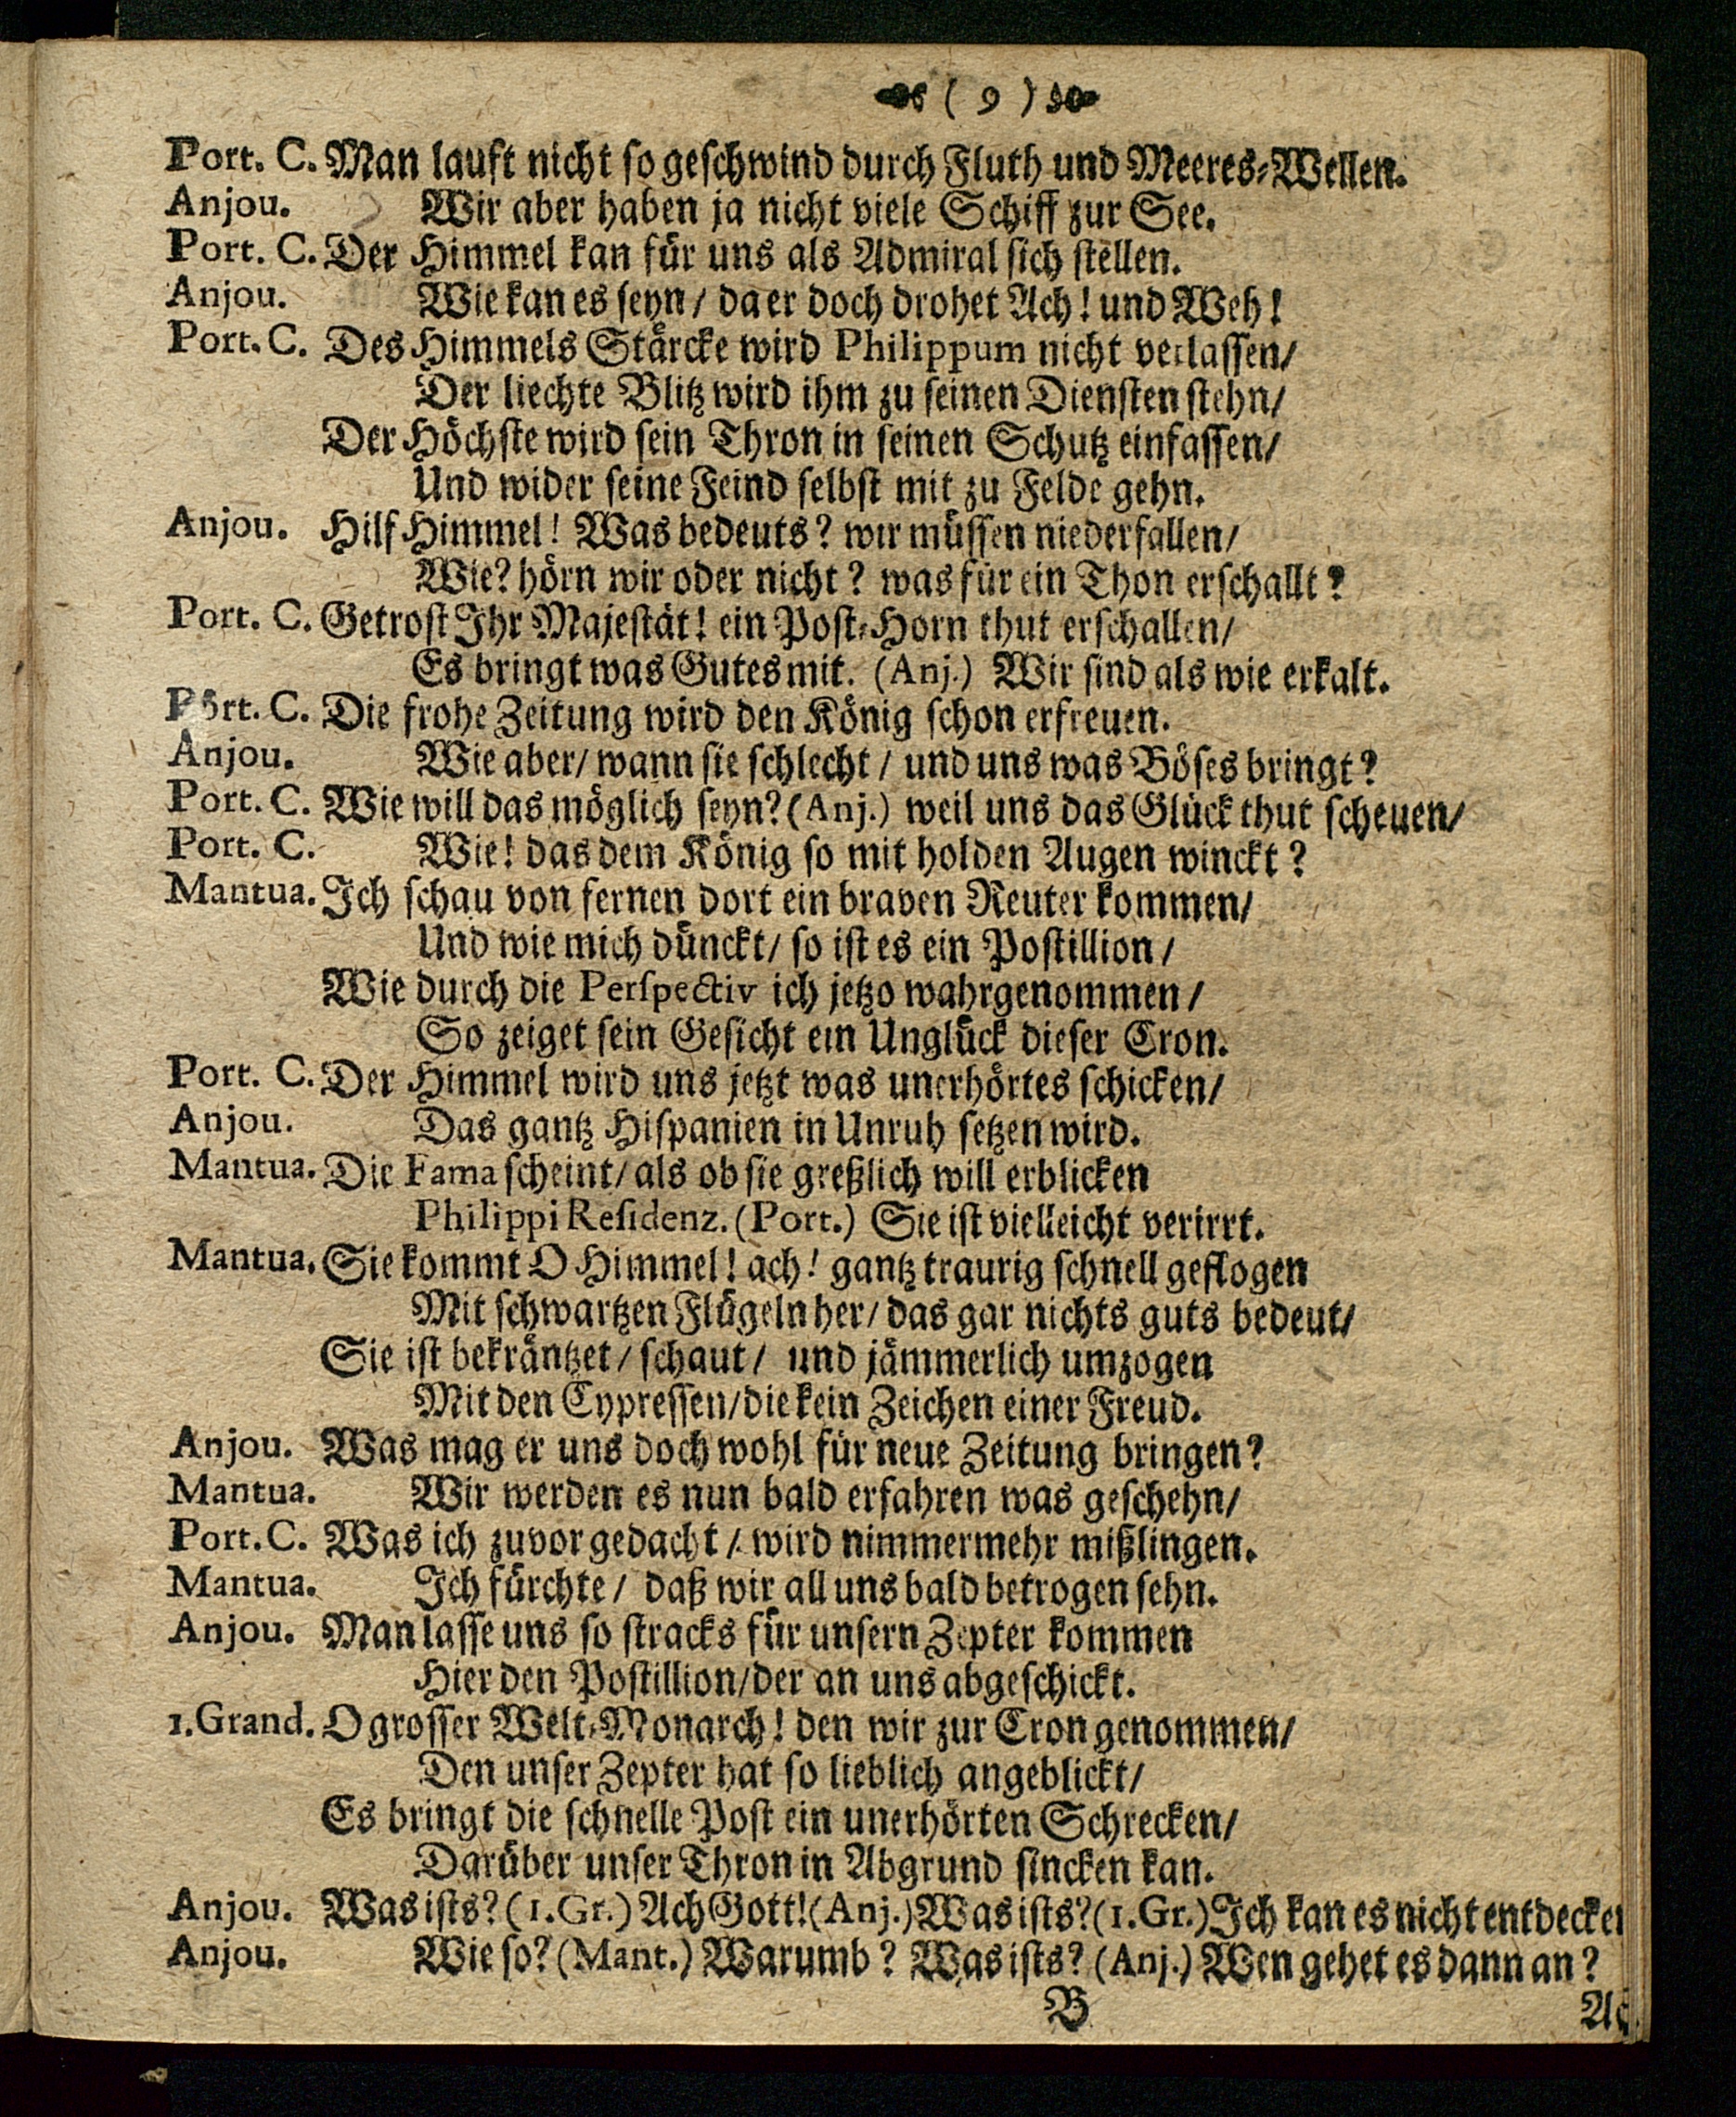 ( 9 )
Port. C. Man lauft nicht so geschwind durch Fluth und Meeres-Wellen.
Anjou. Wir aber haben ja nicht viele Schiff zur See.
Port. C. Der Himmel kan für uns als Admiral sich stellen.
Anjou. Wie kan es seyn / da er doch drohet Ach! und Weh!
Port. C. Des Himmels Stärcke wird Philippum nicht verlassen/
Der liechte Blitz wird ihm zu seinen Diensten stehn/
Der Höchste wird sein Thron in seinen Schutz einfassen/
Und wider seine Feind selbst mit zu Felde gehn.
Anjou. Hilf Himmel! Was bedeuts? wir müssen niederfallen/
Wie? hörn wir oder nicht? was für ein Thon erschallt?
Port. C. Getrost Ihr Majestät! ein Post-Horn thut erschallen/
Es bringt was Gutes mit. (Anj.) Wir sind als wie erkalt.
Port. C. Die frohe Zeitung wird den König schon erfreuen.
Anjou. Wie aber/ wann sie schlecht / und uns was Böses bringt?
Port. C. Wie will das möglich seyn? (Anj.) weil uns das Glück thut scheuen/
Port. C. Wie! das dem König so mit holden Augen winckt?
Mantua. Ich schau von fernen dort ein braven Reuter kommen/
Und wie mich dünckt/ so ist es ein Postillion /
Wie durch die Perspectiv ich jetzo wahrgenommen /
So zeiget sein Gesicht ein Unglück dieser Cron.
Port. C. Der Himmel wird uns jetzt was unerhörtes schicken/
Anjou. Das gantz Hispanien in Unruh setzen wird.
Mantua. Die Fama scheint/ als ob sie greßlich will erblicken
Philippi Residenz. (Port.) Sie ist vielleicht verirrt.
Mantua. Sie kommt O Himmel! ach! gantz traurig schnell geflogen
Mit schwartzen Flügeln her/ das gar nichts guts bedeut/
Sie ist bekräntzet / schaut / und jämmerlich umzogen
Mit den Cypressen/ die kein Zeichen einer Freud.
Anjou. Was mag er uns doch wohl für neue Zeitung bringen?
Mantua. Wir werden es nun bald erfahren was geschehn/
Port. C. Was ich zuvor gedacht / wird nimmermehr mißlingen.
Mantua. Ich fürchte / daß wir all uns bald betrogen sehn.
Anjou. Man lasse uns so stracks für unsern Zepter kommen
Hier den Postillion/ der an uns abgeschickt.
1. Grand. O grosser Welt-Monarch! den wir zur Cron genommen/
Den unser Zepter hat so lieblich angeblickt/
Es bringt die schnelle Post ein unerhörten Schrecken/
Darüber unser Thron in Abgrund sincken kan.
Anjou. Was ists? (1. Gr.) Ach Gott! (Anj.) Was ists? (1. Gr.) Ich kan es nicht entdecken
Anjou. Wie so? (Mant.) Warumb? Was ists? (Anj.) Wen gehet es dann an?
B